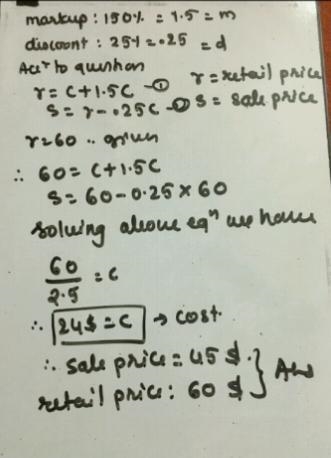 markup : 150% = 1.5 = m
discount : 25% = .25 = d
Acc^r to question
r = c + 1.5c - ①
r = retail price
s = r - .25c - ② s = sale price
r = 60 .. given
∴ 60 = c + 1.5c
s = 60 - 0.25 × 60
solving above eq^n we have
60/2.5 = c
∴ 24$ = c → cost.
∴ sale price = 45 $.
retail price : 60 $ } Ans